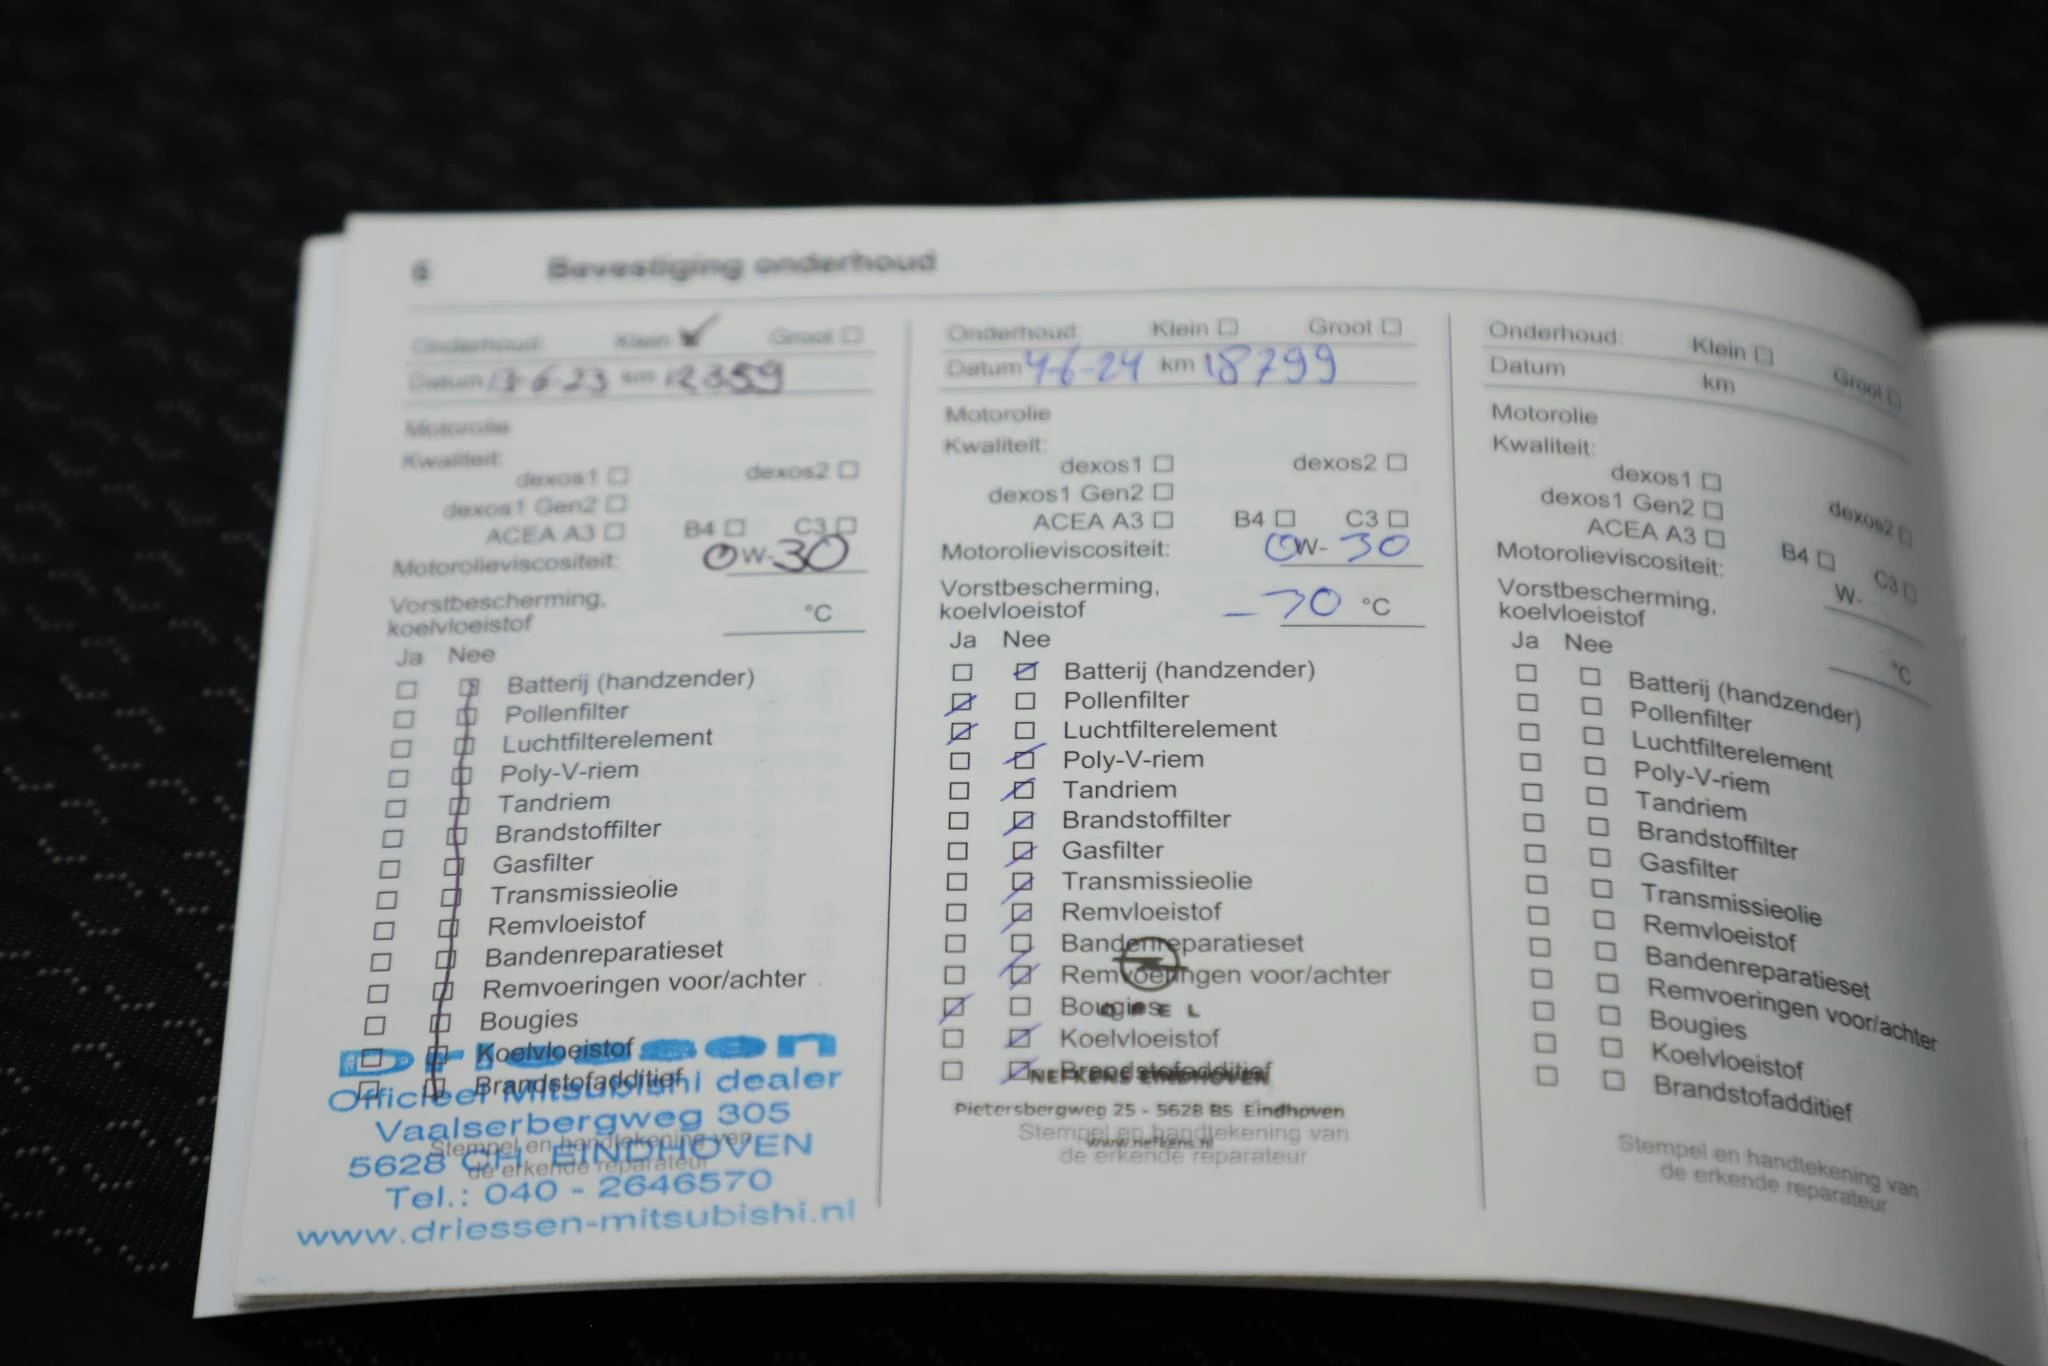 6 Bevestiging onderhoud
Onderhoud: Klein Groot
Datum 13-6-23 km 12359
Motorolie
Kwaliteit:
dexos1 dexos2
dexos1 Gen2
ACEA A3 B4 C3
Motorolieviscositeit: 0W-30
Vorstbescherming,
koelvloeistof °C
Ja Nee
Batterij (handzender)
Pollenfilter
Luchtfilterelement
Poly-V-riem
Tandriem
Brandstoffilter
Gasfilter
Transmissieolie
Remvloeistof
Bandenreparatieset
Remvoeringen voor/achter
Bougies
Koelvloeistof
Brandstofadditief
Stempel en handtekening van
de erkende reparateur
Driessen
Officieel Mitsubishi dealer
Vaalserbergweg 305
5628 CH EINDHOVEN
Tel.: 040 - 2646570
www.driessen-mitsubishi.nl
Onderhoud: Klein Groot
Datum 4-6-24 km 18799
Motorolie
Kwaliteit:
dexos1 dexos2
dexos1 Gen2
ACEA A3 B4 C3
Motorolieviscositeit: 0W-30
Vorstbescherming,
koelvloeistof -30 °C
Ja Nee
Batterij (handzender)
Pollenfilter
Luchtfilterelement
Poly-V-riem
Tandriem
Brandstoffilter
Gasfilter
Transmissieolie
Remvloeistof
Bandenreparatieset
Remvoeringen voor/achter
Bougies
Koelvloeistof
Brandstofadditief
OPEL
NEFKENS EINDHOVEN
Pietersbergweg 25 - 5628 BS Eindhoven
www.nefkens.nl
Stempel en handtekening van
de erkende reparateur
Onderhoud: Klein Groot
Datum km
Motorolie
Kwaliteit:
dexos1 dexos2
dexos1 Gen2
ACEA A3 B4 C3
Motorolieviscositeit: W-
Vorstbescherming,
koelvloeistof °C
Ja Nee
Batterij (handzender)
Pollenfilter
Luchtfilterelement
Poly-V-riem
Tandriem
Brandstoffilter
Gasfilter
Transmissieolie
Remvloeistof
Bandenreparatieset
Remvoeringen voor/achter
Bougies
Koelvloeistof
Brandstofadditief
Stempel en handtekening van
de erkende reparateur